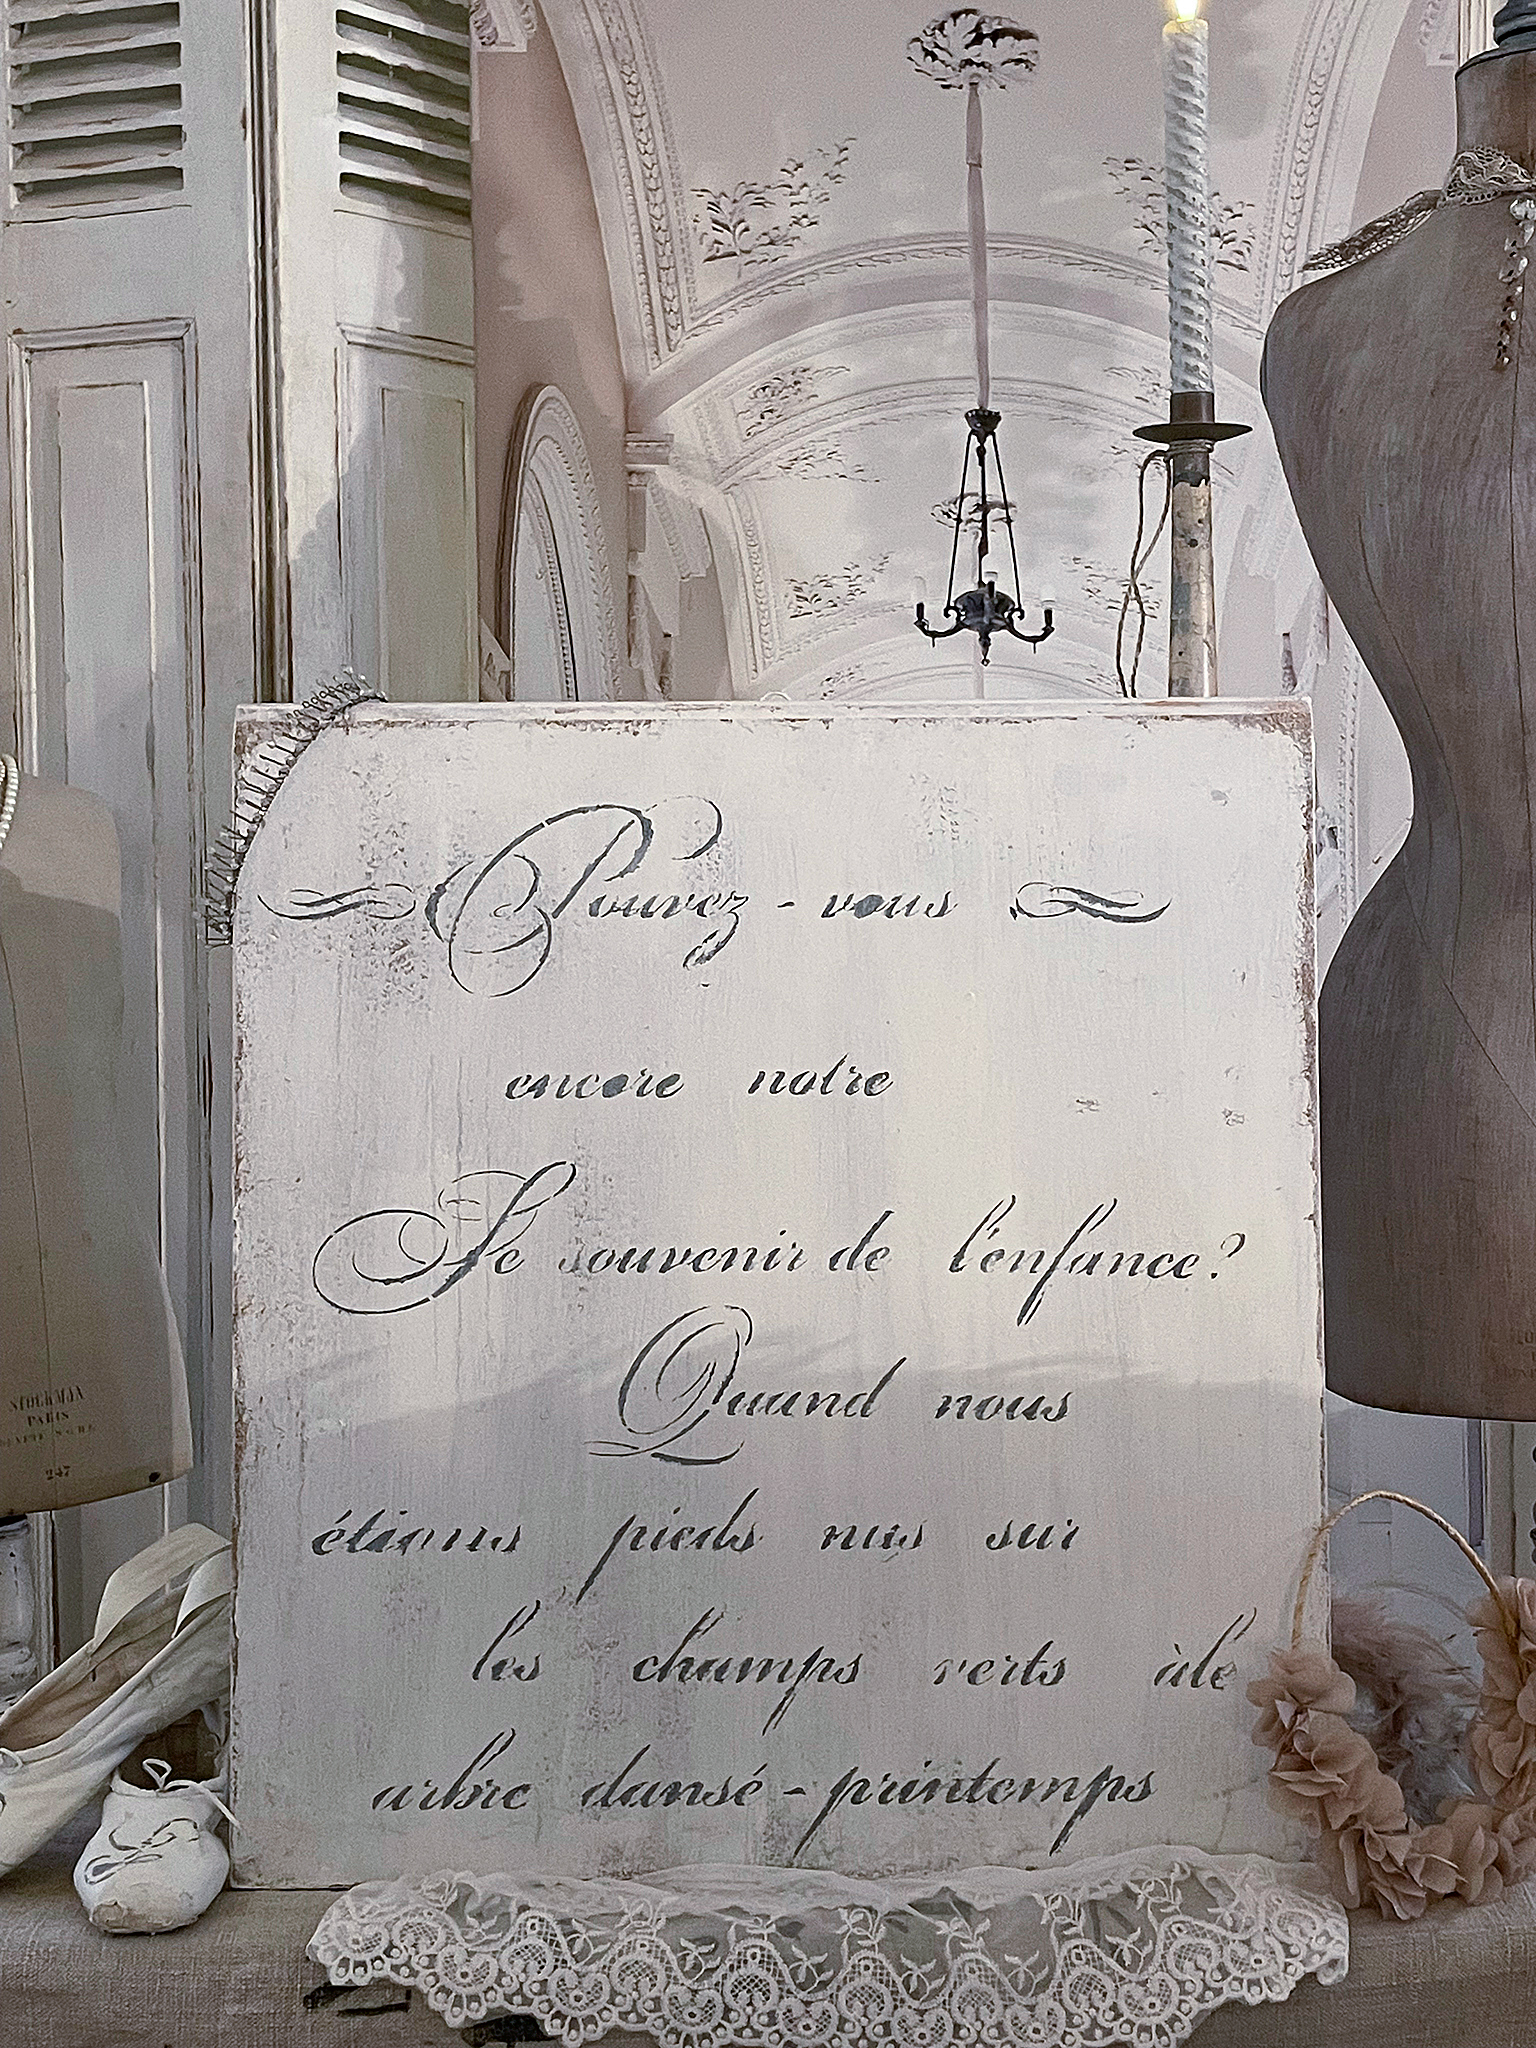 Pouvez - vous
encore notre
Se souvenir de l'enfance?
Quand nous
étions pieds nus sur
les champs verts àlé
arbre dansé - printemps
STOCKMAN
PARIS
247